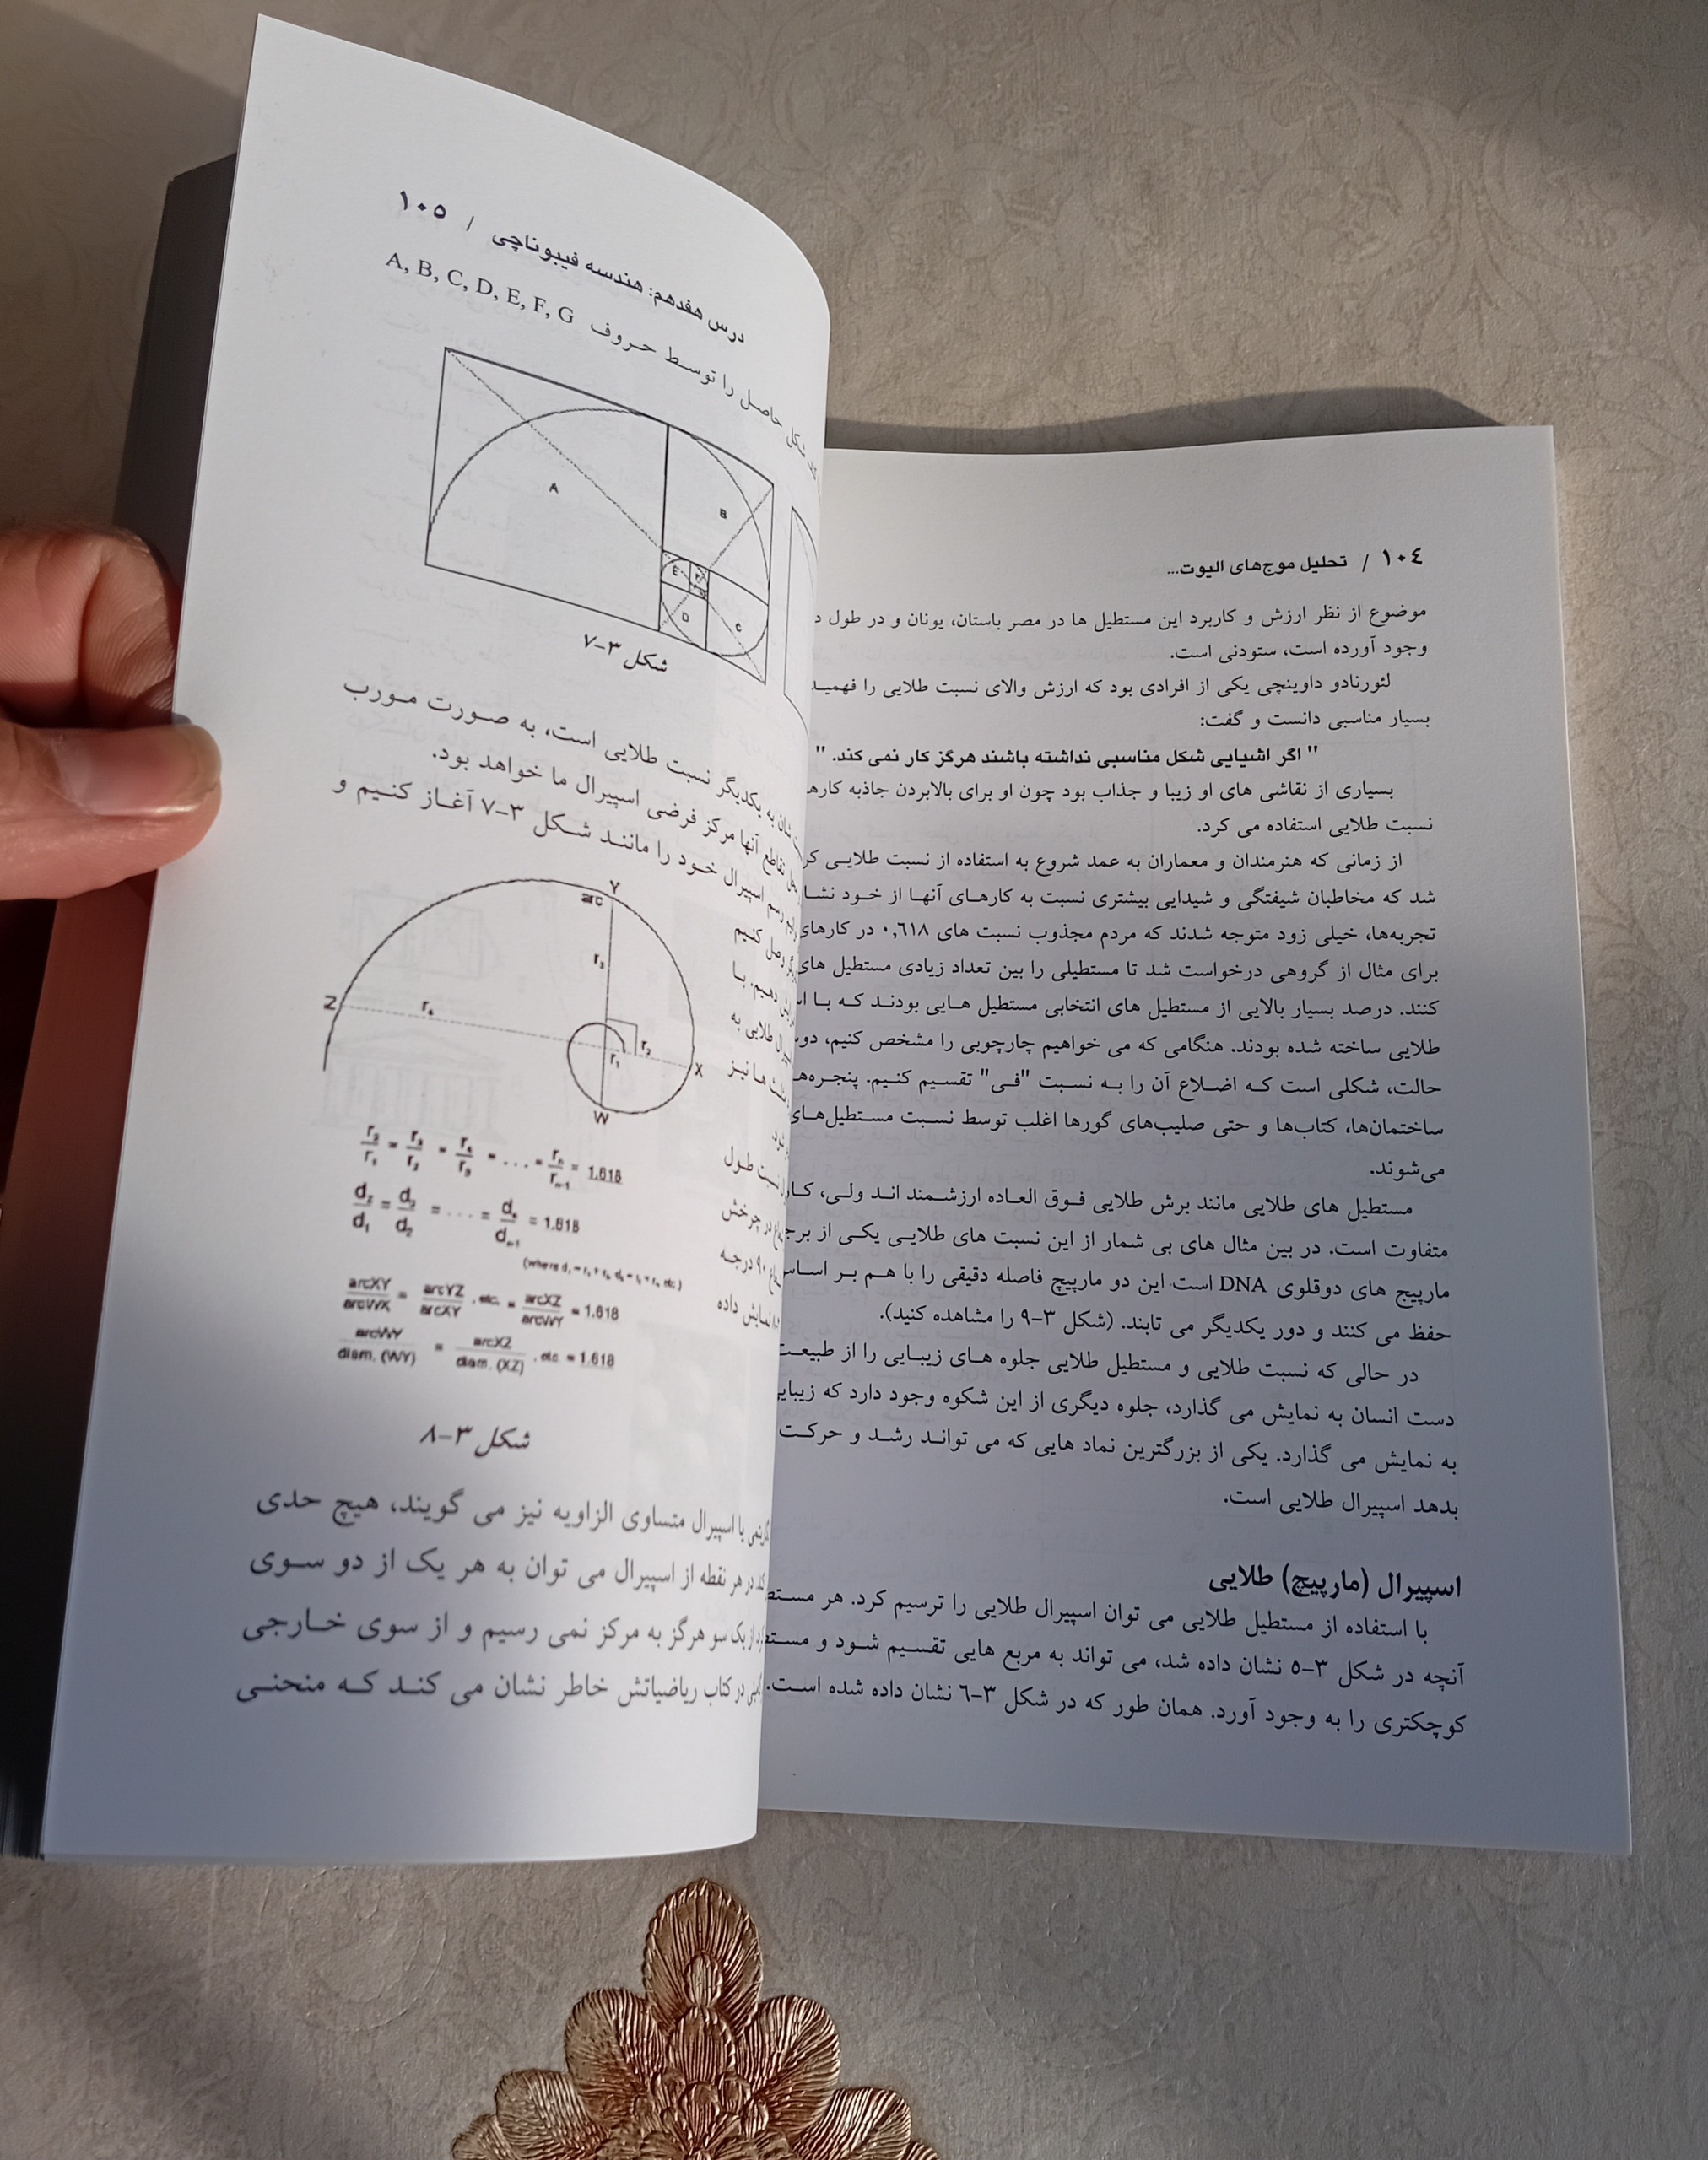 ١٠٤ / تحلیل موج‌های الیوت...
موضوع از نظر ارزش و کاربرد این مستطیل ها در مصر باستان، یونان و در طول
وجود آورده است، ستودنی است.
لئورنادو داوینچی یکی از افرادی بود که ارزش والای نسبت طلایی را
بسیار مناسبی دانست و گفت:
" اگر اشیایی شکل مناسبی نداشته باشند هرگز کار نمی کند. "
بسیاری از نقاشی های او زیبا و جذاب بود چون او برای بالابردن جاذبه
نسبت طلایی استفاده می کرد.
از زمانی که هنرمندان و معماران به عمد شروع به استفاده از نسبت طلایی
شد که مخاطبان شیفتگی و شیدایی بیشتری نسبت به کارهای آنها از خود
تجربه‌ها، خیلی زود متوجه شدند که مردم مجذوب نسبت های ٠,٦١٨ در کارهای
برای مثال از گروهی درخواست شد تا مستطیلی را بین تعداد زیادی مستطیل های
کنند. درصد بسیار بالایی از مستطیل های انتخابی مستطیل هایی بودند که با
طلایی ساخته شده بودند. هنگامی که می خواهیم چارچوبی را مشخص کنیم،
حالت، شکلی است که اضلاع آن را به نسبت "فی" تقسیم کنیم.
ساختمان‌ها، کتاب‌ها و حتی صلیب‌های گورها اغلب توسط نسبت مستطیل‌های
می‌شوند.
مستطیل های طلایی مانند برش طلایی فوق العاده ارزشمند اند ولی،
متفاوت است. در بین مثال های بی شمار از این نسبت های طلایی یکی از
مارپیج های دوقلوی DNA است این دو مارپیچ فاصله دقیقی را با هم بر
حفظ می کنند و دور یکدیگر می تابند. (شکل ۳-۹ را مشاهده کنید).
در حالی که نسبت طلایی و مستطیل طلایی جلوه های زیبایی را از
دست انسان به نمایش می گذارد، جلوه دیگری از این شکوه وجود دارد که
به نمایش می گذارد. یکی از بزرگترین نماد هایی که می تواند رشد و حرکت
بدهد اسپیرال طلایی است.
اسپیرال (مارپیچ) طلایی
با استفاده از مستطیل طلایی می توان اسپیرال طلایی را ترسیم کرد. هر
آنچه در شکل ۳-٥ نشان داده شد، می تواند به مربع هایی تقسیم شود و
کوچکتری را به وجود آورد. همان طور که در شکل ۳-٦ نشان داده شده است.
درس هفدهم: هندسه فیبوناچی / ١٠٥
شکل حاصل را توسط حروف A, B, C, D, E, F, G
A
B
E
D
C
شکل ۳-۷
به یکدیگر نسبت طلایی است، به صورت مورب
تقاطع آنها مرکز فرضی اسپیرال ما خواهد بود.
رسم اسپیرال خود را مانند شکل ۳-۷ آغاز کنیم و
وصل کنیم
دهیم. با
طلایی به
ها نیز
نسبت طول
در چرخش
۹۰ درجه
نمایش داده
Y
arc
r₃
Z
r₄
r₂
r₁
X
W
r₂/r₁ = r₃/r₂ = r₄/r₃ = ... = rₙ/rₙ₋₁ = 1.618
d₂/d₁ = d₃/d₂ = ... = dₙ/dₙ₋₁ = 1.618
arcXY/arcWX = arcYZ/arcXY, etc. = arcXZ/arcWY = 1.618
arcWY/diam. (WY) = arcXZ/diam. (XZ), etc. = 1.618
شکل ۳-۸
یا اسپیرال متساوی الزاویه نیز می گویند، هیچ حدی
در هر نقطه از اسپیرال می توان به هر یک از دو سوی
از یک سو هرگز به مرکز نمی رسیم و از سوی خارجی
در کتاب ریاضیاتش خاطر نشان می کند که منحنی